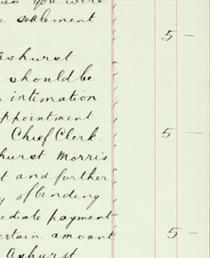 you were
settlement
5 –
Ashurst
should be
intimation
appointment
Chief Clerk. 5 –
hurst Morris
t and further
y of binding
ediate payment
ertain amount 5 –
Ashurst